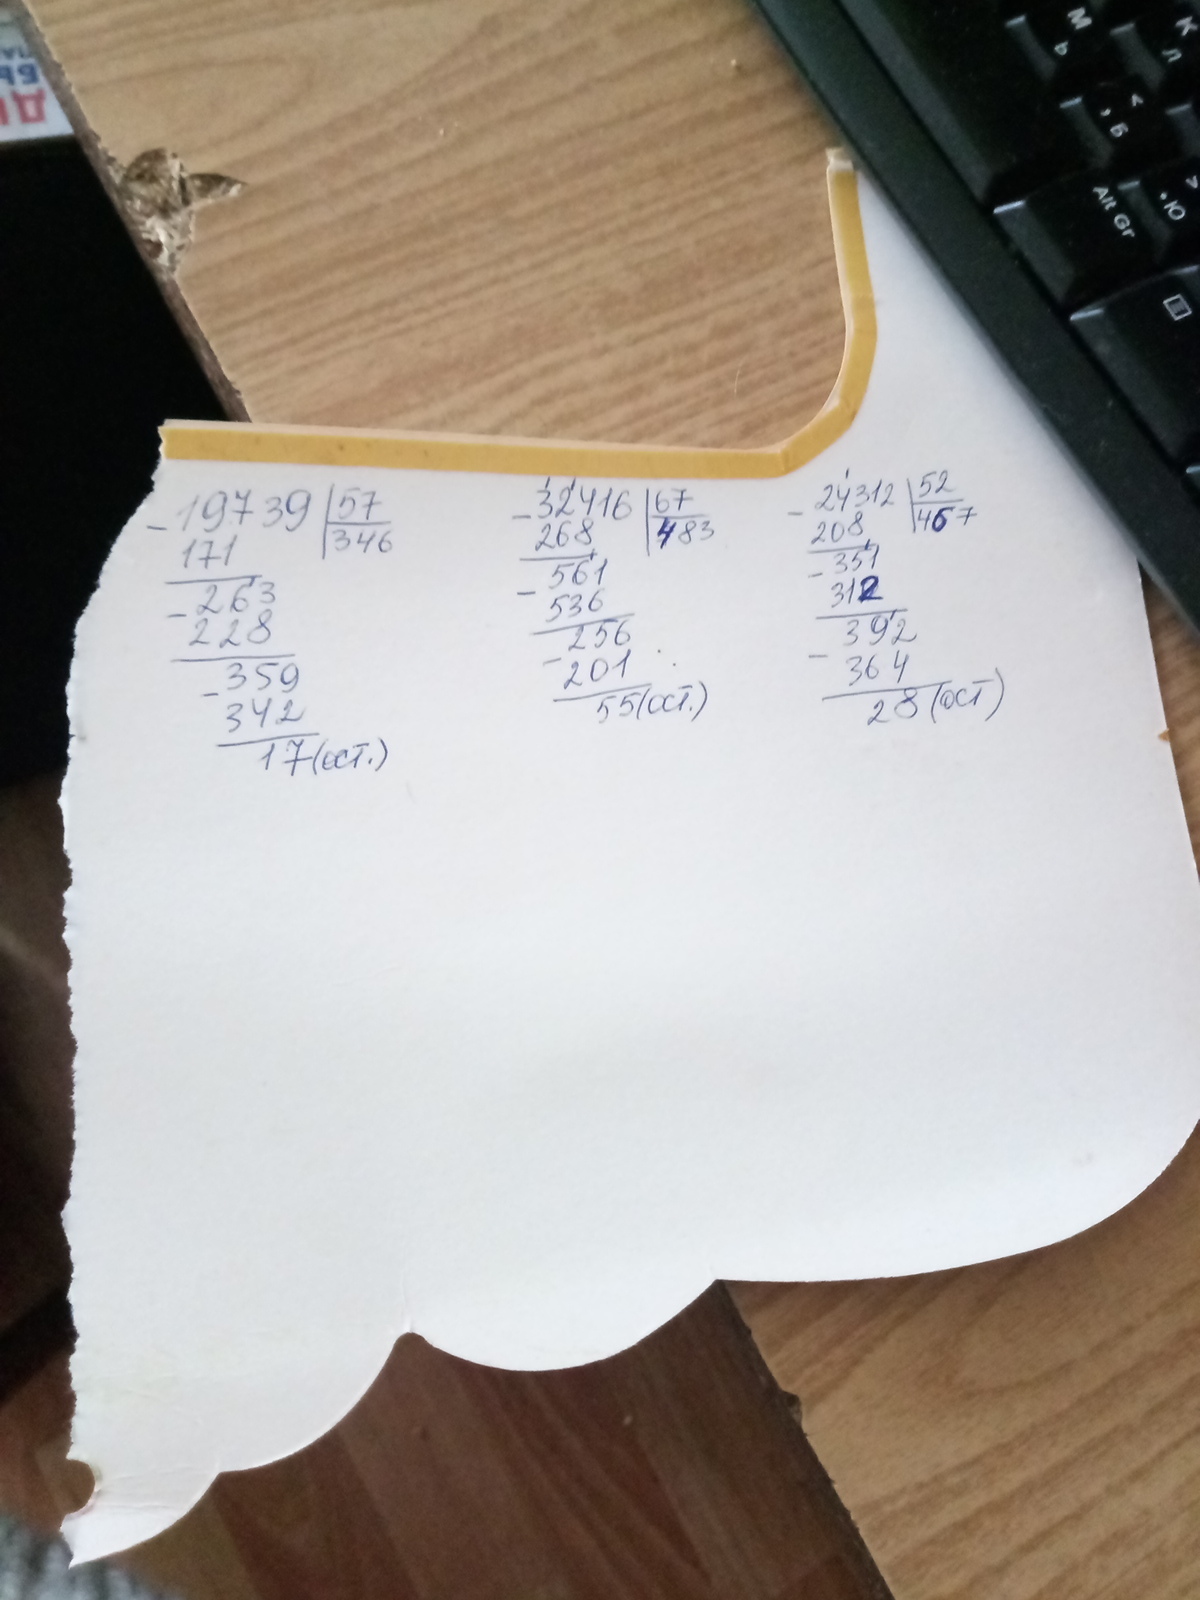 -19739 |57
171 346
-263
228
-359
342
17(ост.)
-32416 |67
268 483
-561
536
-256
201
55(ост.)
-24312 |52
208 467
-351
312
-392
364
28(ост)
М
Ь
К
Л
<
, Б
>
. Ю
Alt Gr